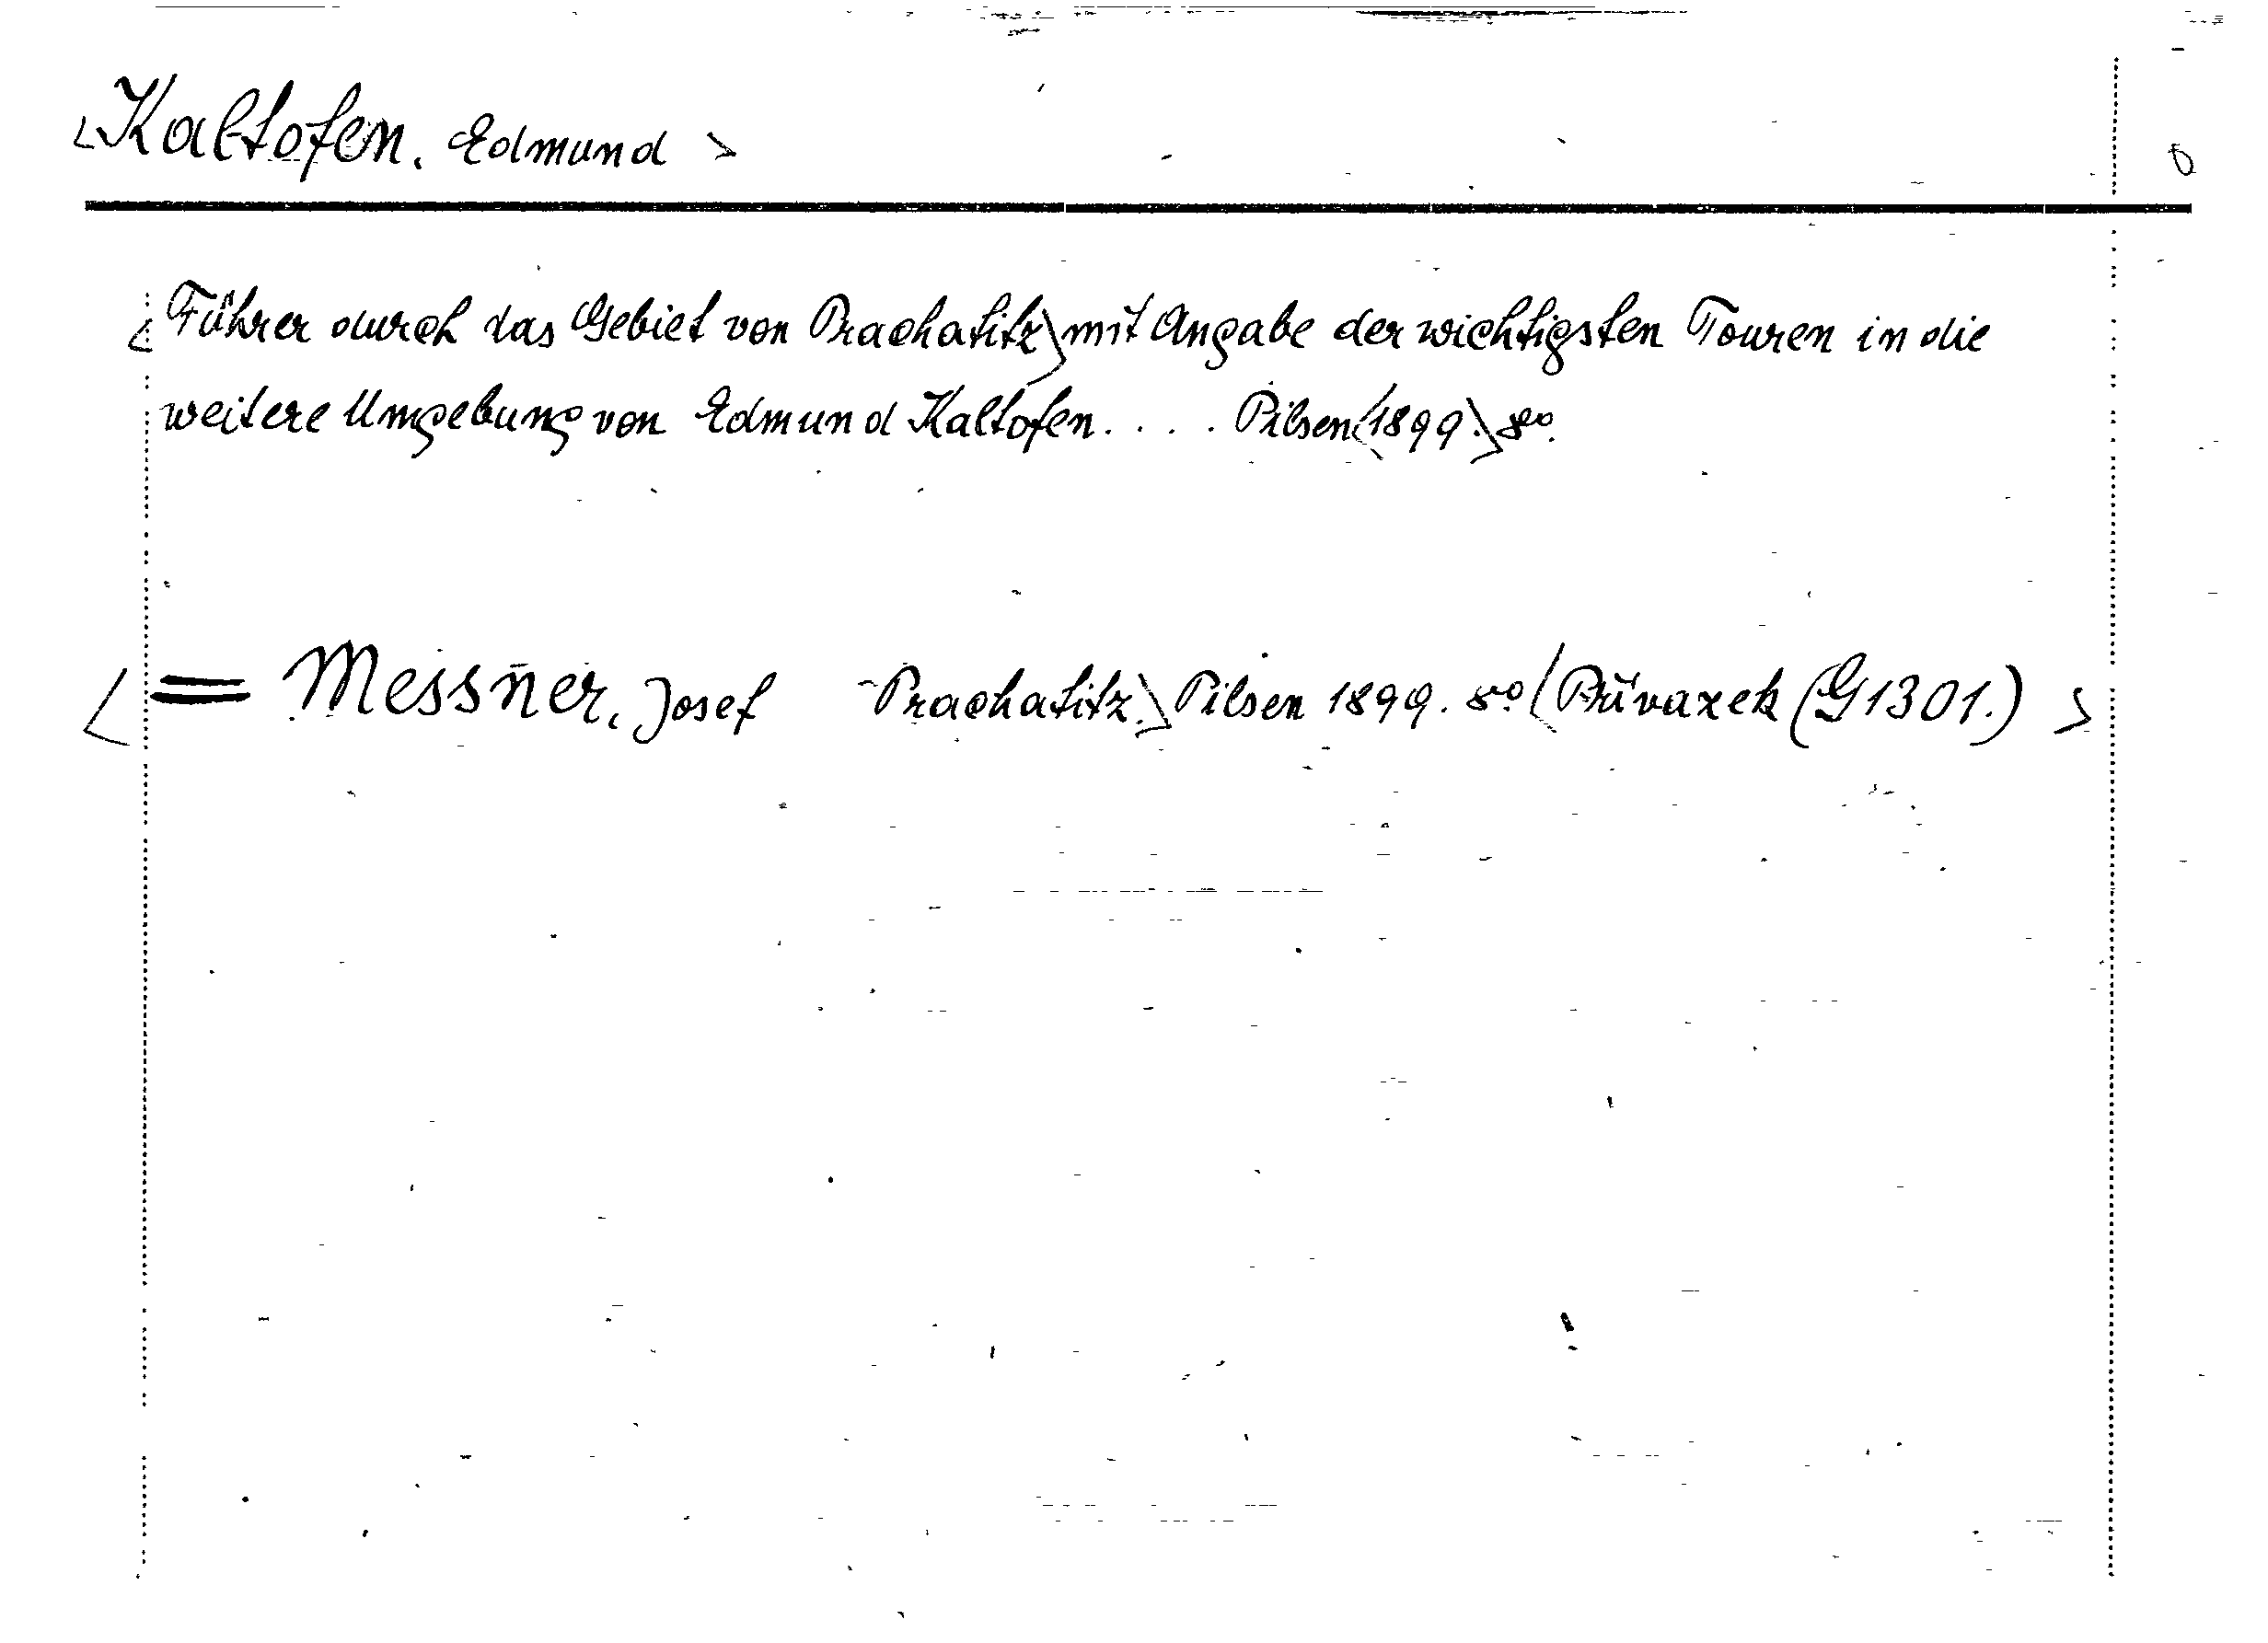 <Kaltofen, Edmund>
<Führer durch das Gebiet von Prachatitz> mit Angabe der wichtigsten Touren in die
weitere Umgebung von Edmund Kaltofen.... Pilsen <1899.> 8vo.
<= Messner, Josef Prachatitz.> Pilsen 1899. 8vo <(G1301.)>